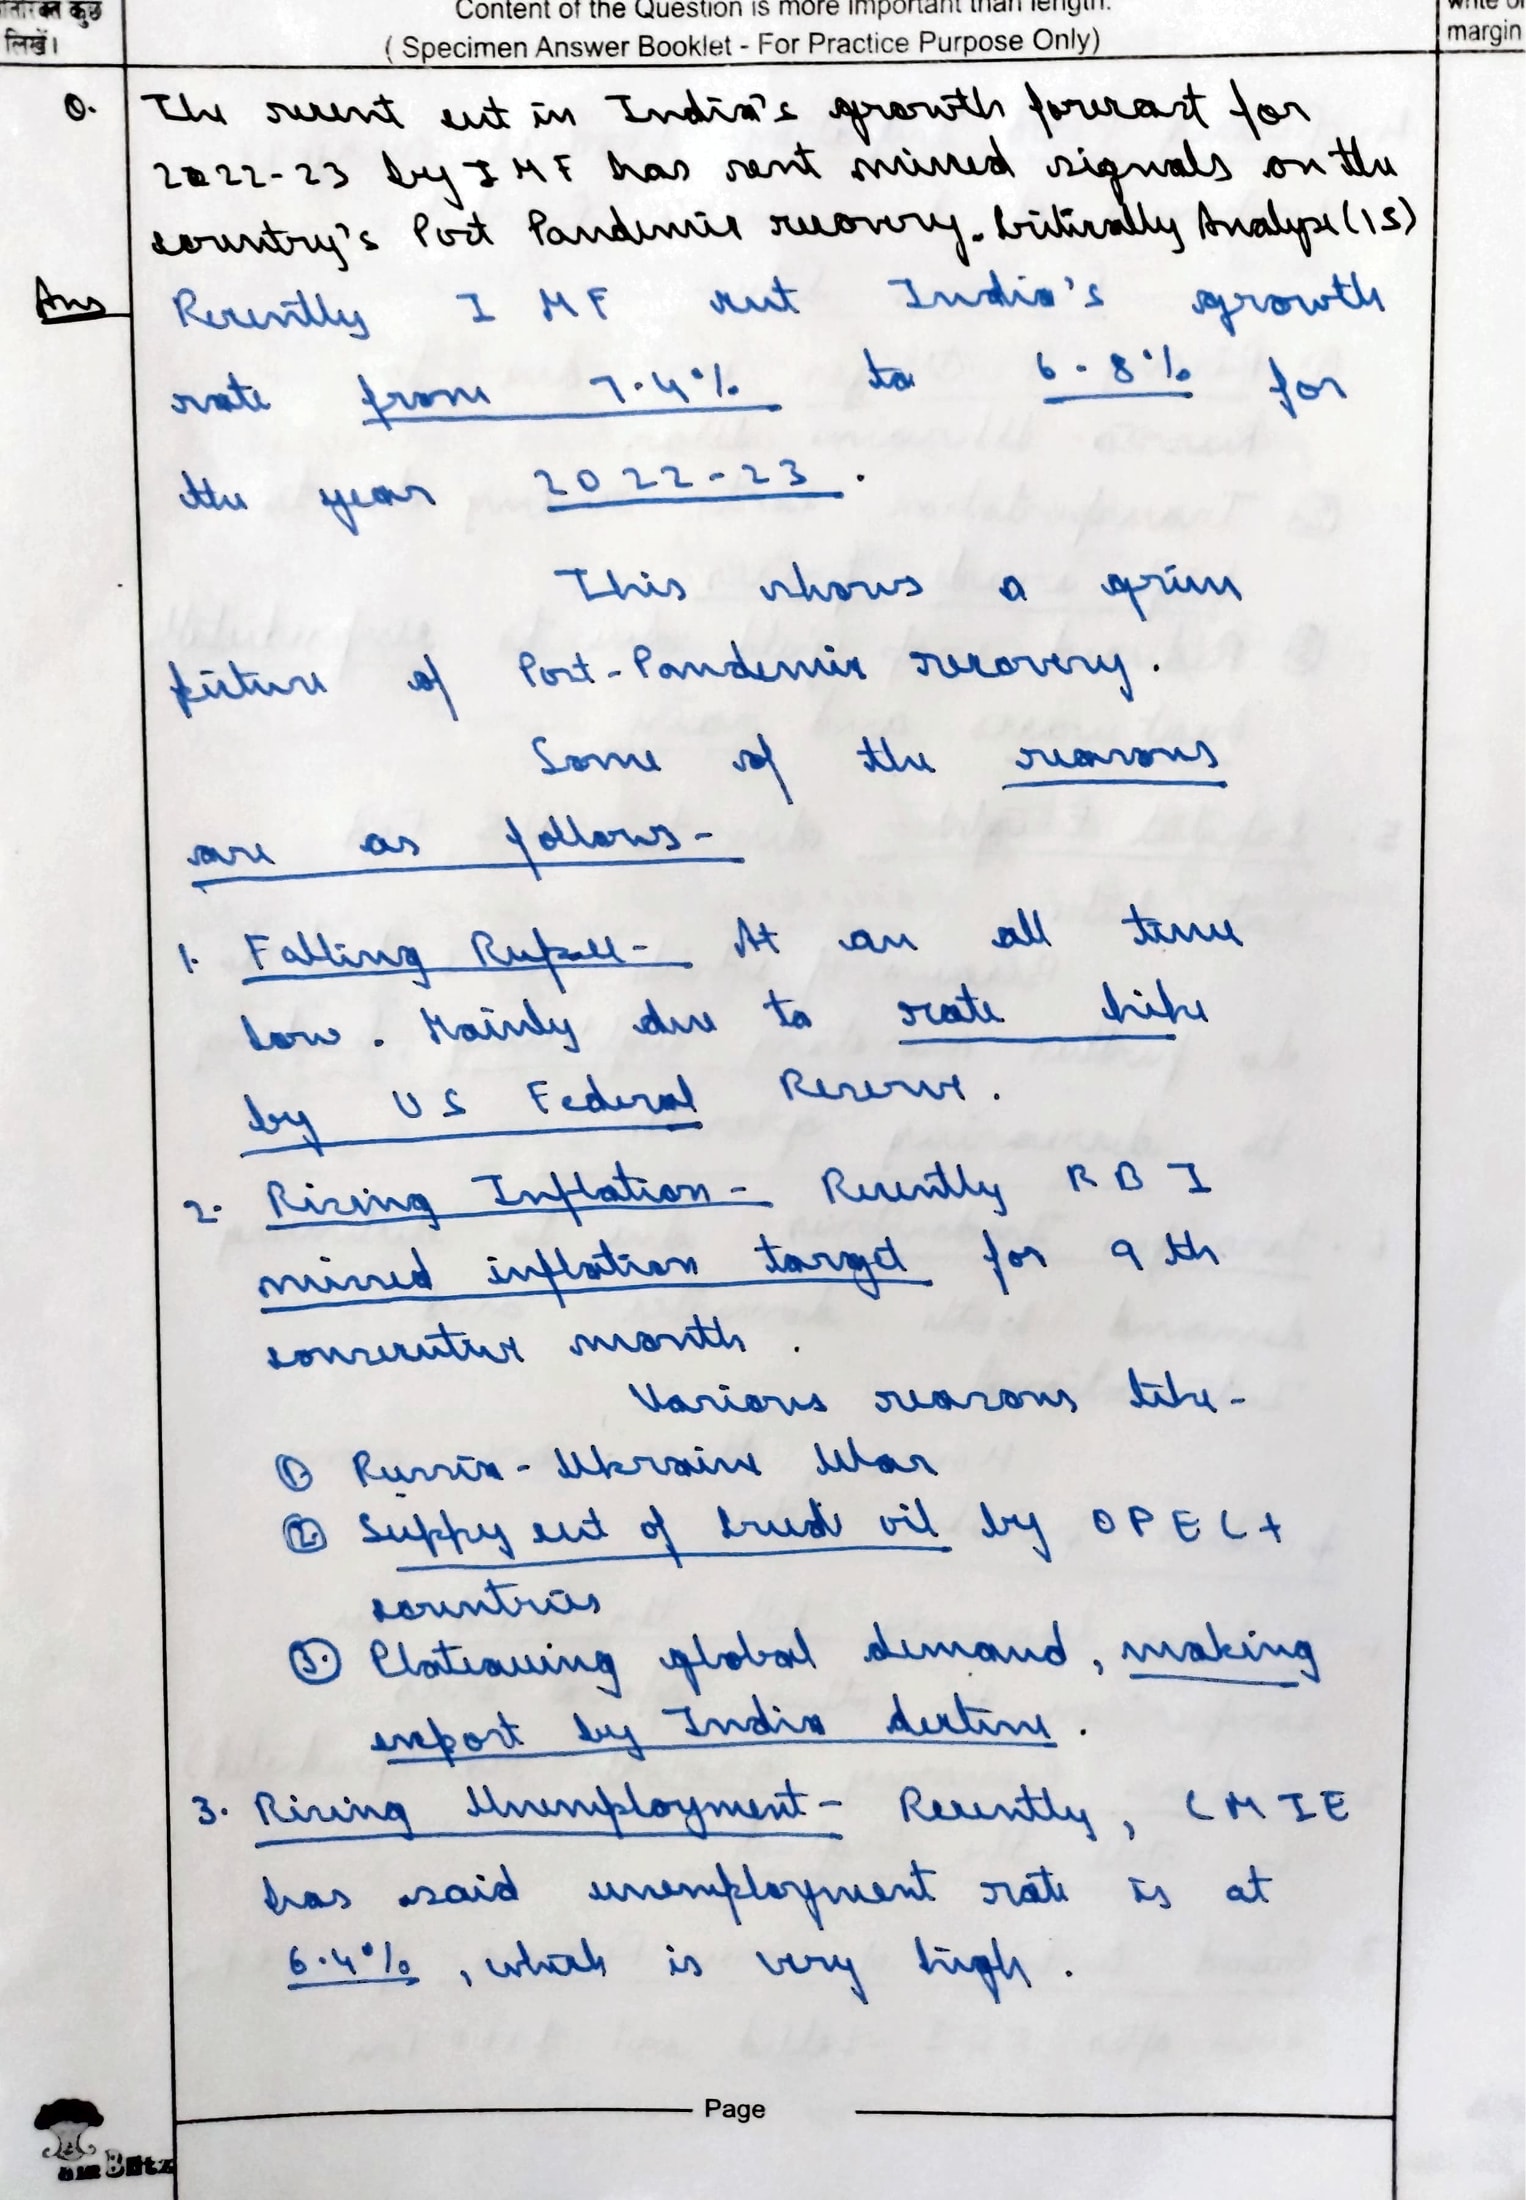 अतिरिक्त कुछ
लिखें।
Content of the Question is more important than length.
( Specimen Answer Booklet - For Practice Purpose Only)
write on
margin
Q. The recent cut in India's growth forecast for
2022-23 by IMF has sent mixed signals on the
country's Post Pandemic recovery. Critically Analyse (15)
Ans Recently IMF cut India's growth
rate from 7.4% to 6.8% for
the year 2022-23.
This shows a grim
picture of Post-Pandemic recovery.
Some of the reasons
are as follows-
1. Falling Rupee- At an all time
low. Mainly due to rate hike
by US Federal Reserve.
2. Rising Inflation- Recently RBI
missed inflation target for 9th
consecutive month.
Various reasons like-
① Russia-Ukraine War
② Supply cut of crude oil by OPEC+
countries
③ Plateauing global demand, making
export by India decline.
3. Rising Unemployment- Recently, CMIE
has said unemployment rate is at
6.4%, which is very high.
Page